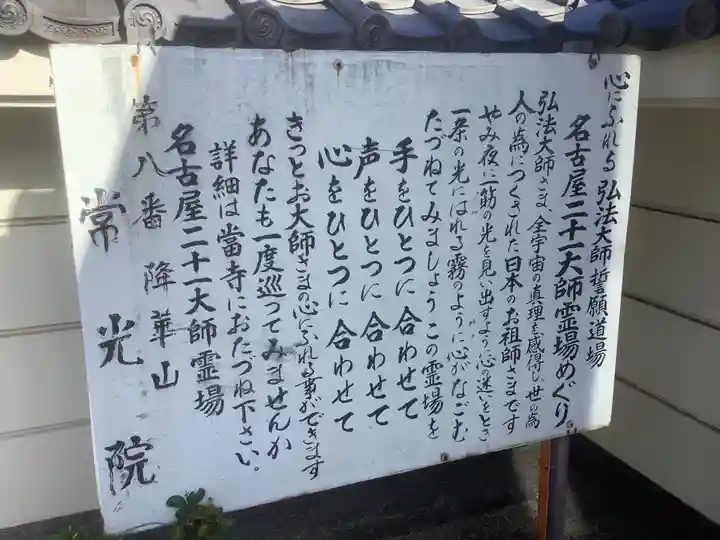 心にふれる 弘法大師誓願道場
名古屋二十一大師霊場めぐり
弘法大師さま、全宇宙の真理を感得し世の為
人の為につくされた日本のお祖師さまです
やみ夜に一筋の光を見い出すように心の迷いをとき
一条の光にはれる霧のように心がなごむ
たづねてみましょうこの霊場を
手をひとつに合わせて
声をひとつに合わせて
心をひとつに合わせて
きっとお大師さまの心にふれる事ができます
あなたも一度巡ってみませんか
詳細は當寺におたづね下さい。
名古屋二十一大師霊場
第八番 降華山
常光院